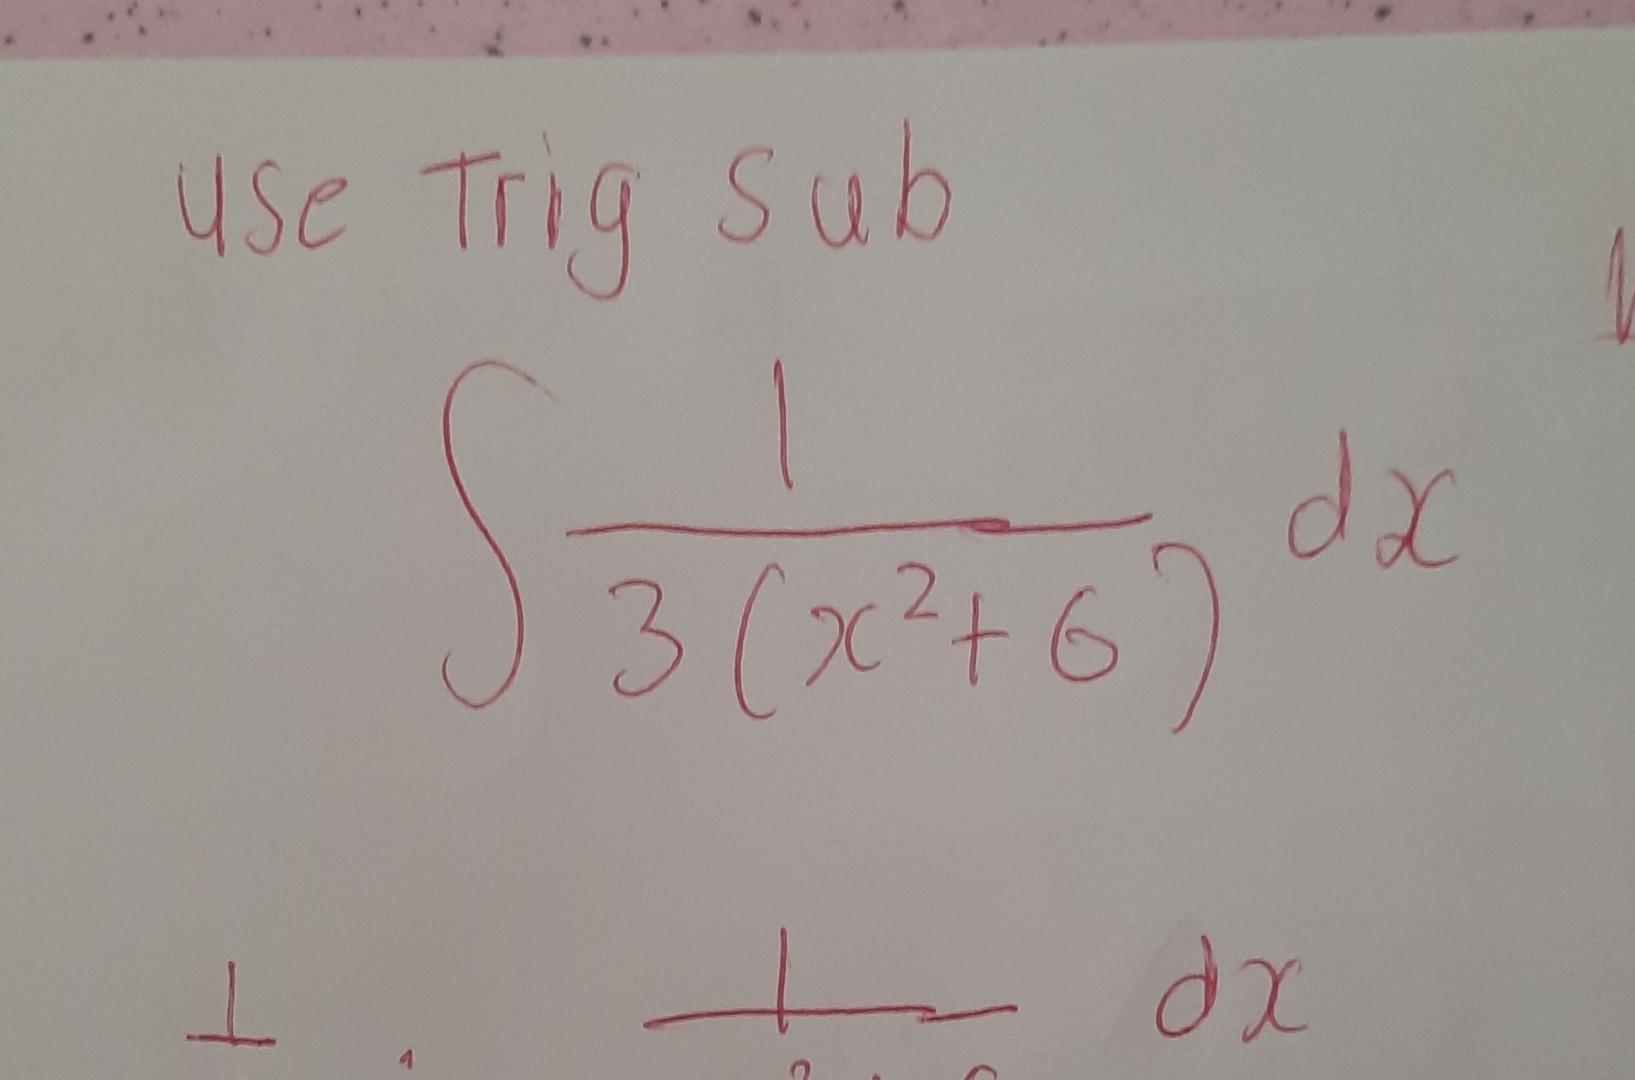 use Trig sub
∫ 1 / 3(x²+6) dx
1 1 dx